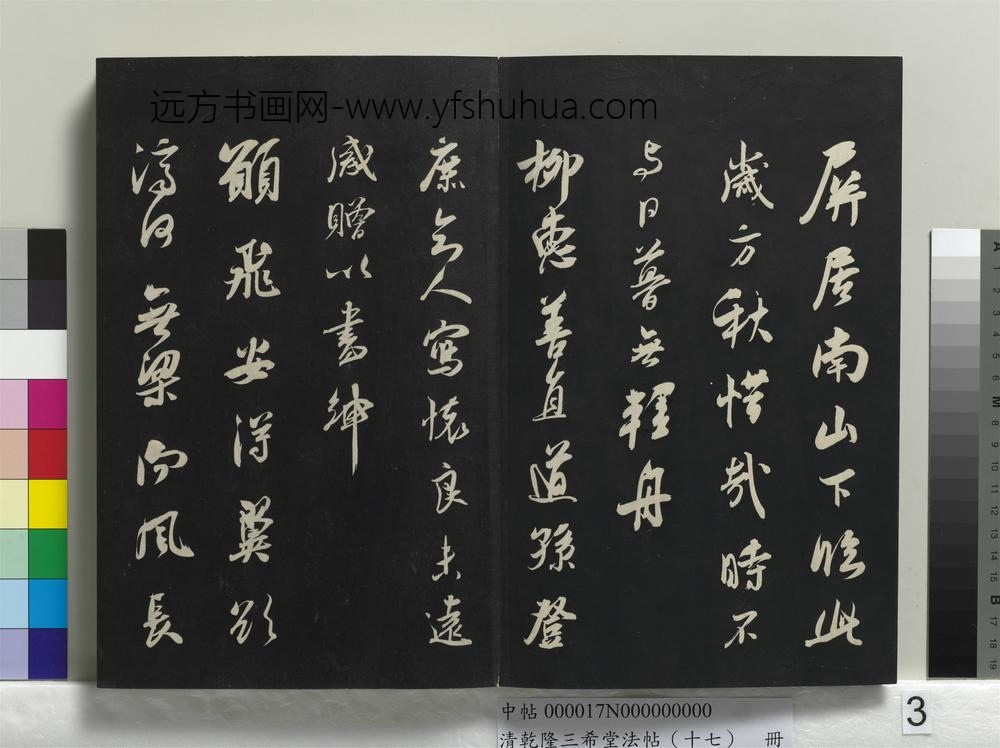 远方书画网-www.yfshuhua.com
屏居南山下臨此
歲方秋惜哉時不
与日暮無輕舟
柳惠善直道孫登
庶知人寫懷良未遠
感贈以書紳
願飛安得翼欲
濟河無梁向風長
中帖 000017N000000000
清乾隆三希堂法帖（十七） 冊
3
A 1 2 3 4 5 6 M 8 9 10 11 12 13 14 15 B 17 18 19